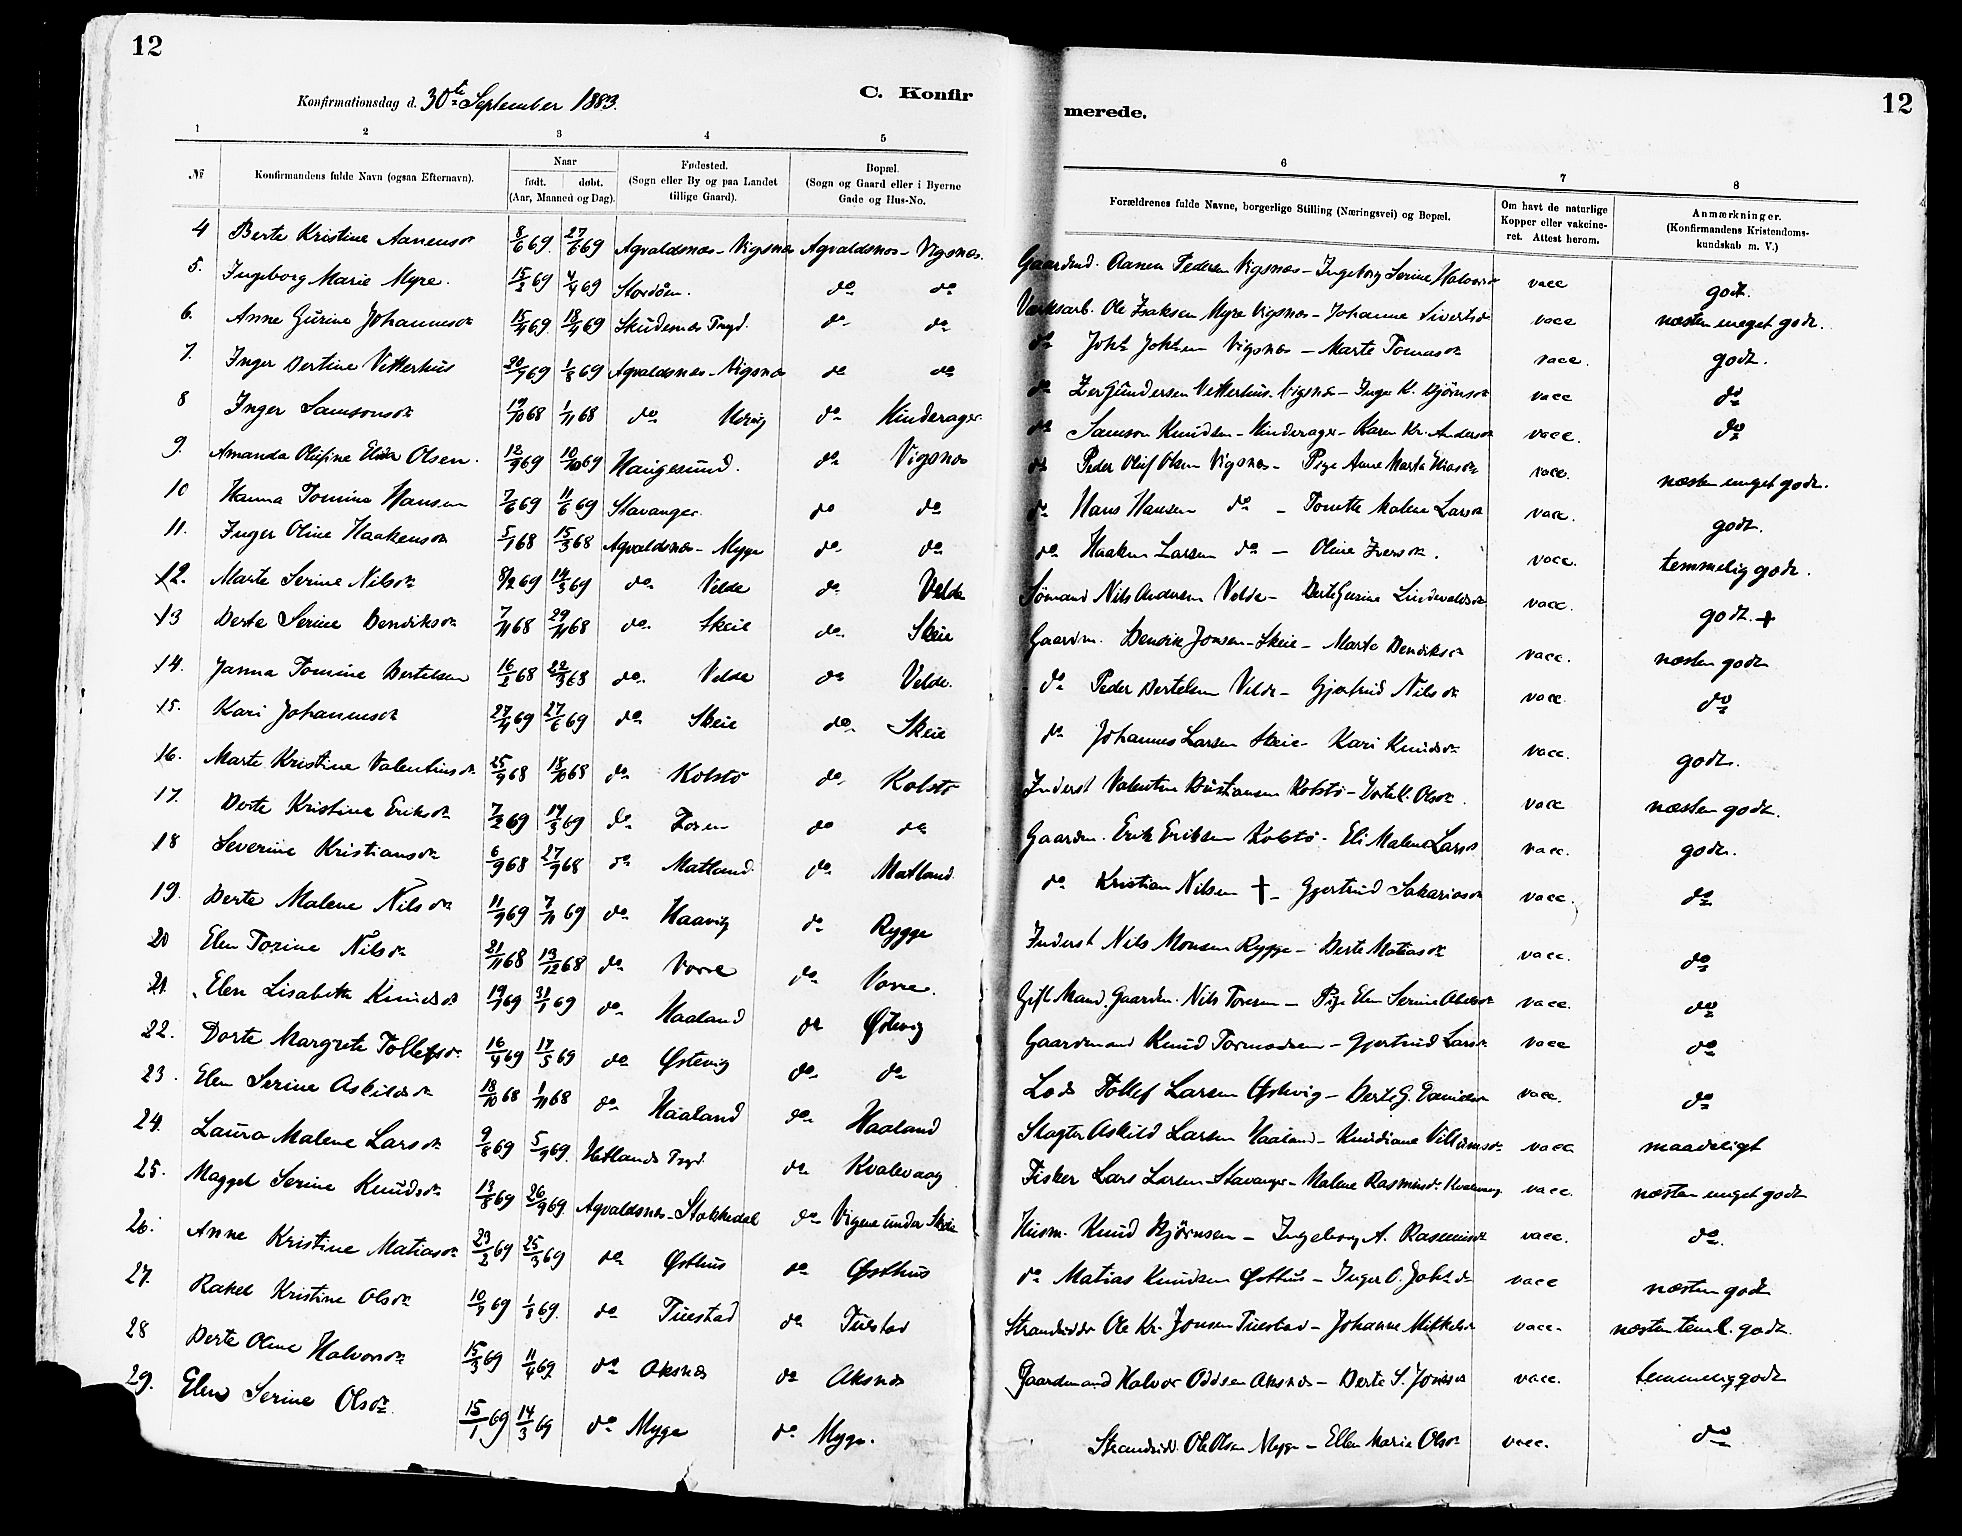 12
12
Konfirmationsdag d. 30te September 1883.
C. Konfir
merede.
1 2 3 4 5 6 7 8
№
Konfirmandens fulde Navn (ogsaa Efternavn).
Naar
født. døbt.
(Aar, Maaned og Dag).
Fødested.
(Sogn eller By og paa Landet
tillige Gaard).
Bopæl.
(Sogn og Gaard eller i Byerne
Gade og Hus-No.
Forældrenes fulde Navne, borgerlige Stilling (Næringsvei) og Bopæl.
Om havt de naturlige
Kopper eller vakcine-
ret. Attest herom.
Anmærkninger.
(Konfirmandens Kristendoms-
kundskab m. V.)
4 Berte Kristine Aanensdr 8/6 69. 27/6 69 Agvaldsnæs - Vigsnæs Agvaldsnæs - Vigsnæs. Gaardmd. Aanen Pedersen Vigsnæs - Ingeborg Serine vacc godt.
5. Ingeborg Marie Myre. 15/2 69 4/4 69 Stordøen. do do Ole Isaksen Myre Vigsnæs - Johanne Sivertsdr vacc næsten meget godt.
6. Anne Gurine Johannesdr 15/4 69 18/4 69 Skudesnæs Prgd. do do do Vigsnæs - Marte vacc. godt.
7. Inger Bertine Vetterhus 20/7 69 1/8 69 Agvaldsnæs - Vigsnæs do do do Gundersen Vetterhus. Vigsnæs - Inger K. Bjørnsdr vacc do
8 Inger Samsonsdr 19/10 68 1/11 68 do do Kinderager do Samson Knudsen - Kinderager - Karen Kr. Andersdr vacc. do
9. Amanda Olufine Elisa Olsen. 12/9 69 10/10 69 Haugesund. do Vigsnæs do Peder Oluf Olsen Vigsnæs - Pige Anne Marta vacc. næsten meget godt.
10 Hanna Tomine Hansen 7/6 69 11/6 69 Stavanger. do do do Hans Hansen do - Tomette Malene Larsdr vacc. godt.
11. Inger Oline Haakensdr 5/1 68 15/3 68 Agvaldsnæs - Myge do do do Haaken Larsen do - Oline Iversdr. vacc. temmelig godt.
12. Marte Serine Nilsdr 8/2 69 14/3 69 do Velde do Velde Sømand Nils Andersen Velde - vacc. godt. +
13 Berte Serine Bendiksdr 7/11 68 29/11 68 do. Skeie do. Skeie Gaardm. Bendik Jonsen - Skeie - Marta Bendiksdr vacc. næsten godt
14. Janna Tomine Bertelsen 16/2 68 22/3 68 do. Velde do Velde. do Peder Bertelsen Velde - Gjertrud Nilsdr vacc. do
15. Kari Johannesdr 27/4 69 27/6 69 do Skeie do Skeie do Johannes Larsen Skeie - Kari Knudsdr vacc. godt.
16. Marte Kristine Valentinsdr 25/9 68 18/10 68 do Kolstø do. Kolstø Inderst Valentin Kolstø - Olsdr. vacc næsten godt.
17. Berte Kristine Eriksdr 7/2 69 14/3 69 do do do Gaardm. Erik Eriksen Kolstø - Eli Malene Larsdr vacc. godt.
18 Severine Kristiansdr 6/9 68 27/9 68 do Matland. do Matland. do Kristian Nilsen † - Gjertrud Sakariasdr vacc. do
19. Berte Malene Nilsdr 11/9 69 7/11 69 do Haavig do Rygge Inderst Nils Monsen Rygge - Berte Matiasdr vacc. do
20 Elen Torine Nilsdr 21/11 68 13/12 68 do Vorre do Vorre. Gift Mand. Gaardm. Nils Toresen - Pige Elen Serine vacc. do
21. Elen Lisabeth Knudsdr 19/1 69 31/1 69 do Haaland do Østevig Gaardmand Knud Tormodsen - Gjertrud Larsdr vacc do
22. Dorte Margrete Tollefsdr 16/4 69 17/5 69 do Østevig do do Lods Tollef Larsen Østevig - Berte G. vacc. do
23. Elen Serine Askildsdr 18/10 68 1/11 68 do Haaland do Haaland Slagter Askild Larsen Haaland - Knudiane Villumsdr vacc maadeligt
24. Laura Malene Larsdr 9/8 69 5/9 69. Hetlands Prgd do Kvalevaag Fisker Lars Larsen - Stavanger - Malene Rasmusdr Kvalevaag vacc. næsten meget godt
25. Maggel Serine Knudsdr 13/8 69 26/9 69. Agvaldsnæs - Stokkedal do Vigene under Skeie Husm. Knud Bjørnsen - Ingeborg A. Rasmusdr vacc. do.
26. Anne Kristine Matiasdr 23/2 69 25/3 69 do Østhus do Østhus do Matias Knudsen Østhus - Inger O. vacc næsten godt
27. Rakel Kristine Olsdr 10/7 69 1/8 69. do Tuestad do Tuestad Strandsidder Ole Kr. Jonsen Tuestad - Johanne vacc. næsten teml. godt
28 Berte Oline Halvorsdr 15/3 69 11/4 69 do Aksnæs do Aksnæs Gaardmand Halvor Oddsen Aksnæs - Berte S. Jonsdr vacc. temmelig godt
29. Elen Serine Olsdr. 15/1 69 14/3 69 do Myge do Myge. Strandsid. Ole Olsen Myge - Ellen Marie Olsdr vacc. do